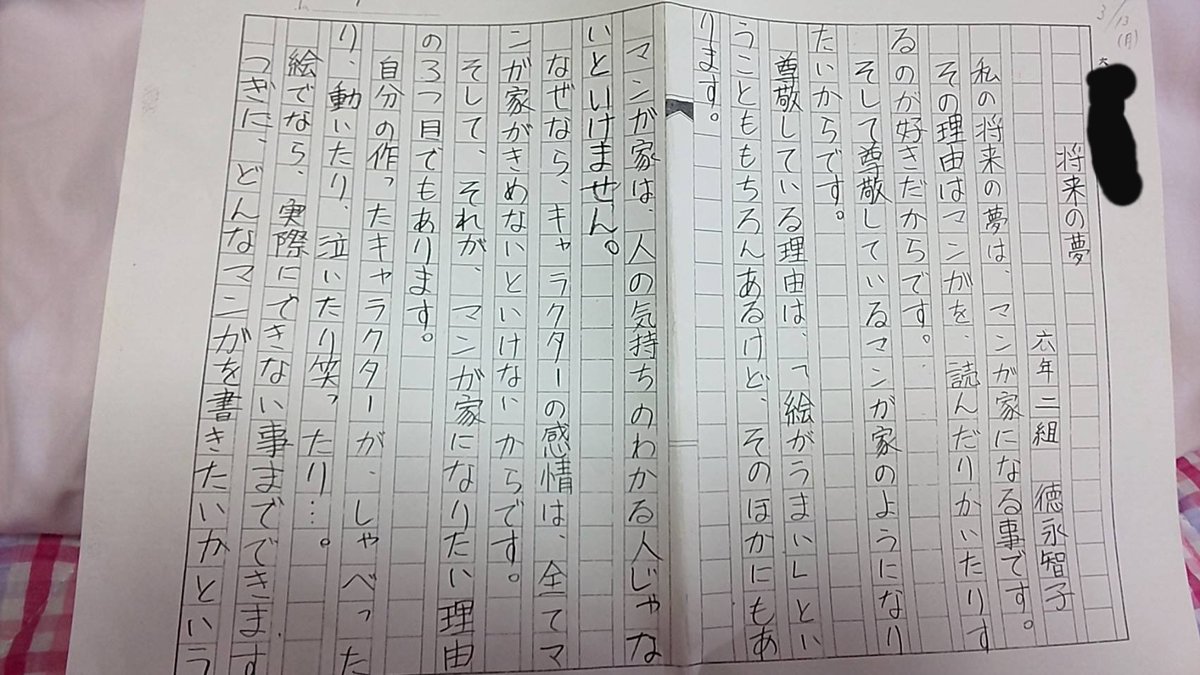 3/13(月)
将来の夢
六年二組 徳永智子
私の将来の夢は、マンが家になる事です。
その理由はマンがを、読んだりかいたりす
るのが好きだからです。
そして尊敬しているマンが家のようになり
たいからです。
尊敬している理由は、「絵がうまい」とい
うことももちろんあるけど、そのほかにもあ
ります。
マンが家は、人の気持ちのわかる人じゃな
いといけません。
なぜなら、キャラクターの感情は、全てマ
ンが家がきめないといけないからです。
そして、それが、マンが家になりたい理由
の3つ目でもあります。
自分の作ったキャラクターが、しゃべった
り、動いたり、泣いたり笑ったり…。
絵でなら、実際にできない事までできます
つぎに、どんなマンがを書きたいかという